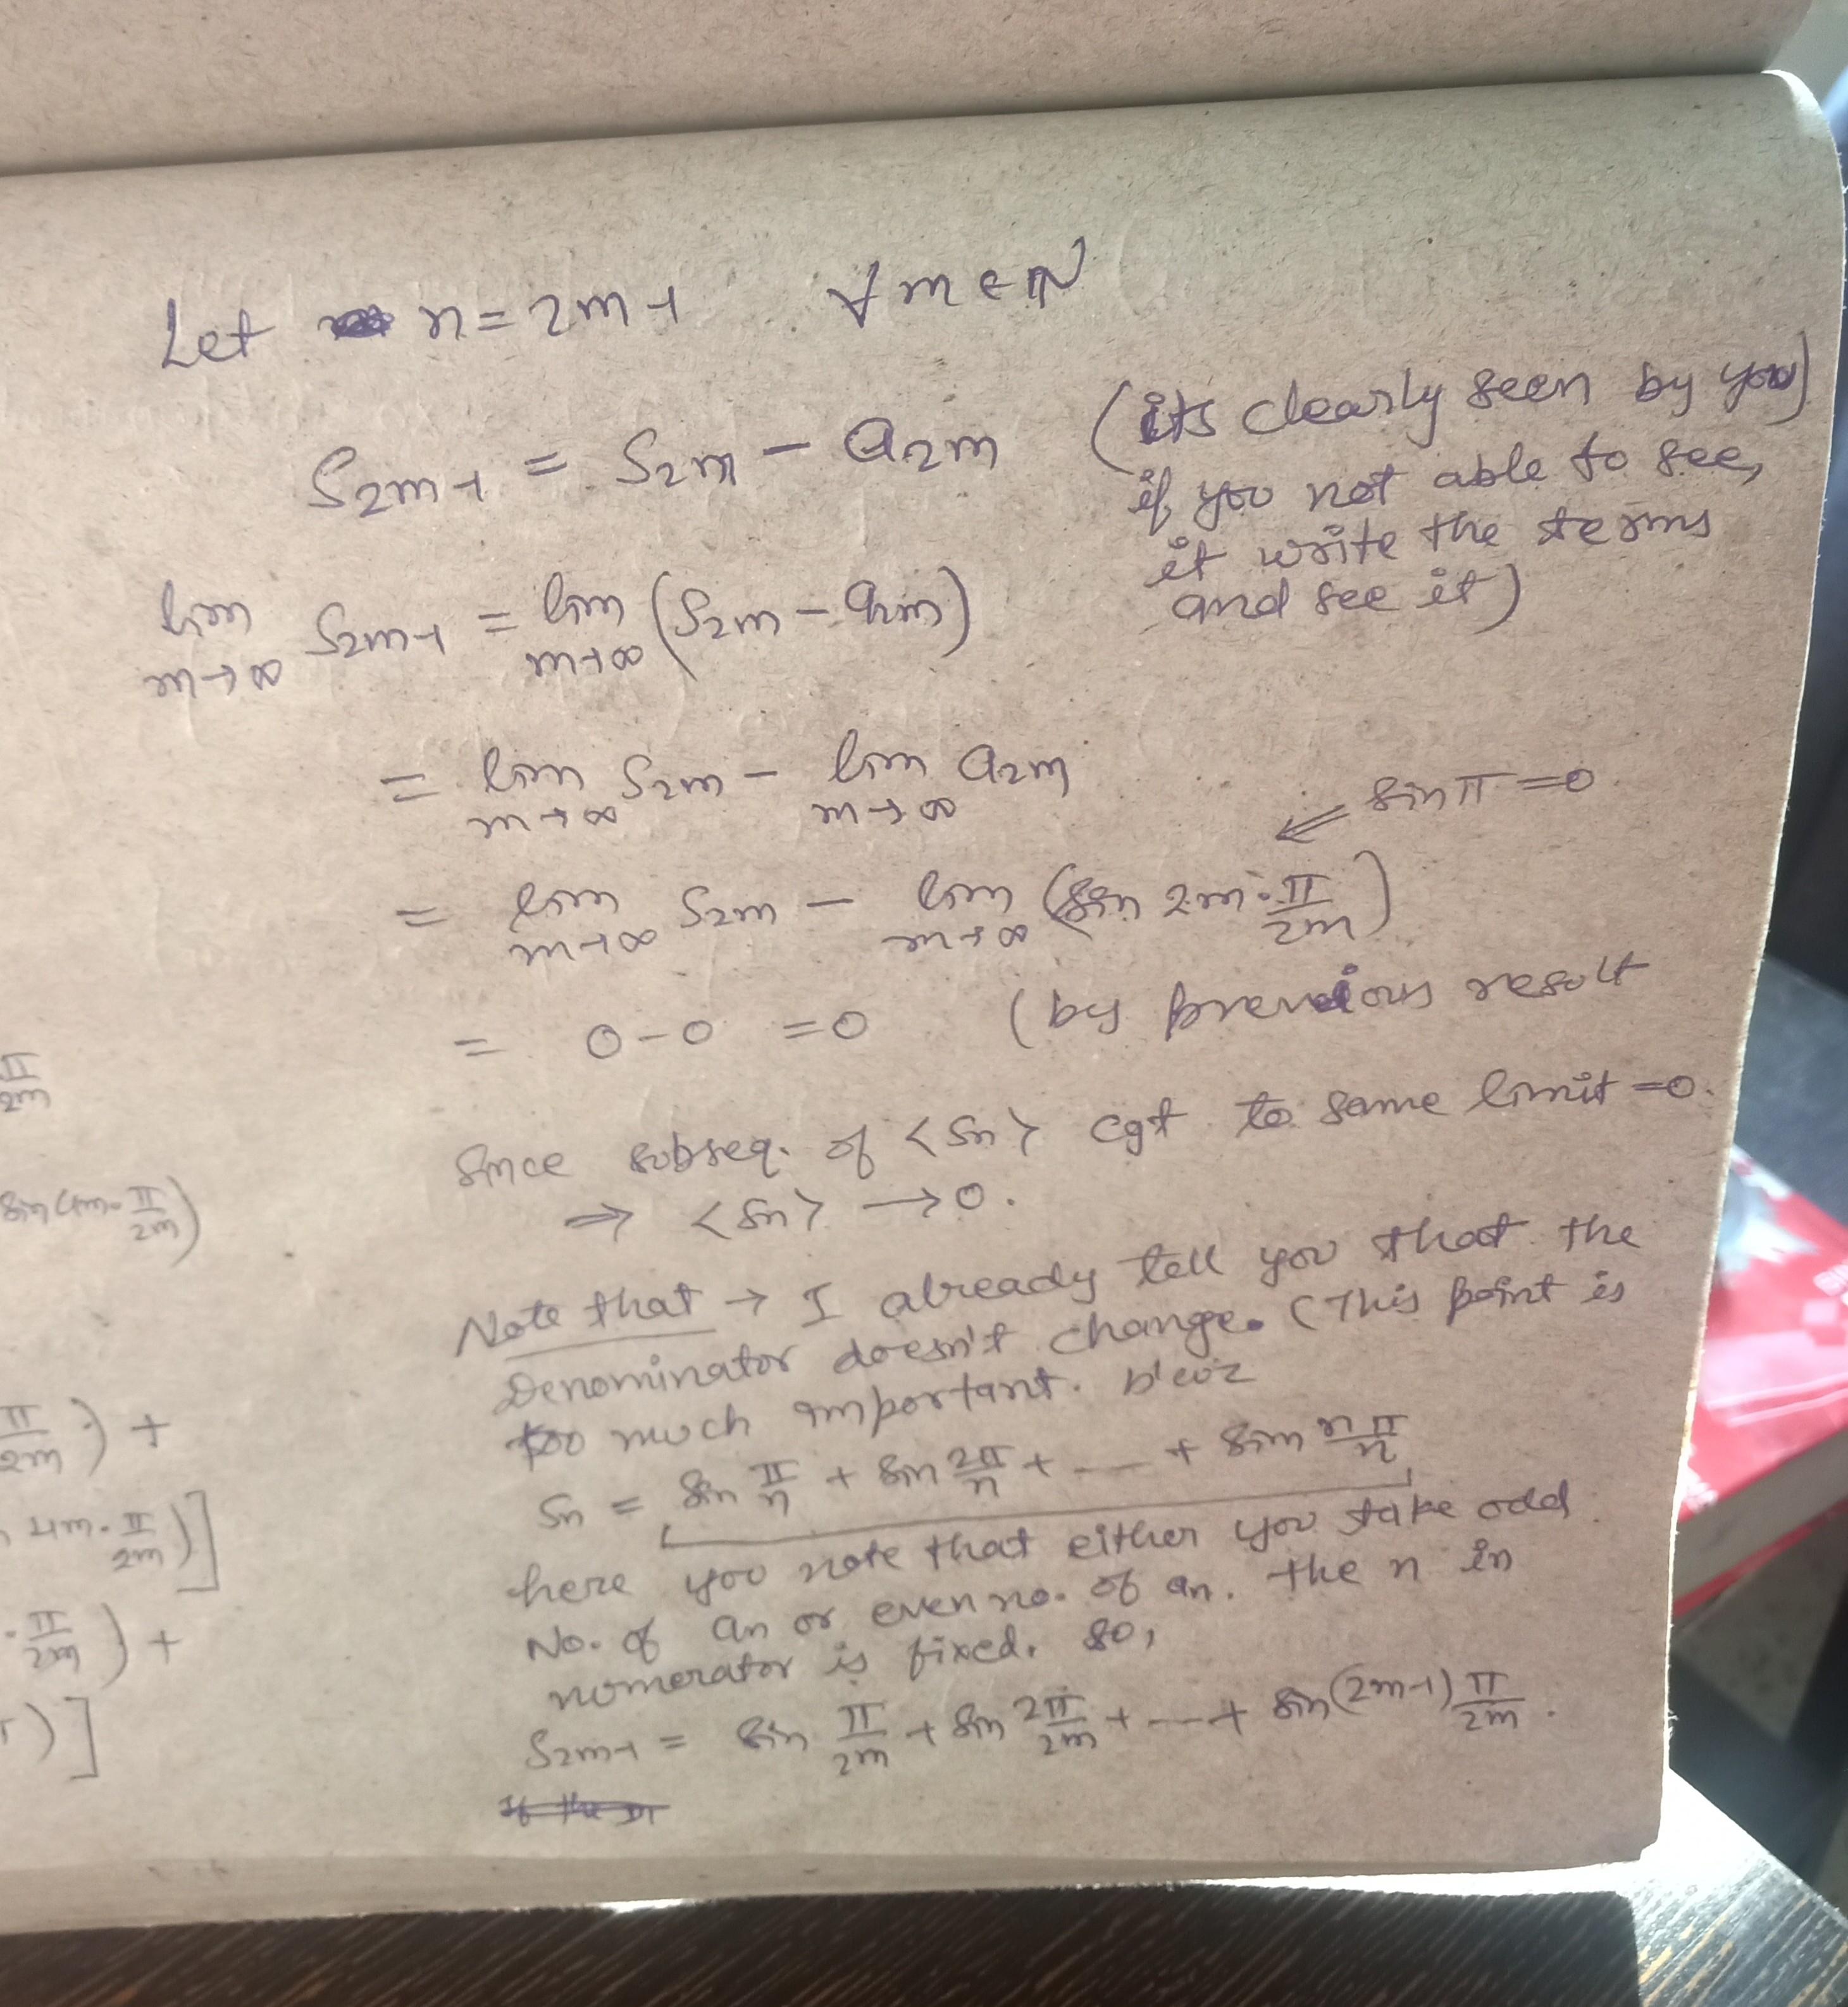 Let n = 2m-1 ∀ m ∈ N
S2m-1 = S2m - a2m (its clearly seen by you)
if you not able to see,
it write the terms
and see it)
lim m→∞ S2m-1 = lim m→∞ (S2m - a2m)
= lim m→∞ S2m - lim m→∞ a2m
⇐ sin π = 0
= lim m→∞ S2m - lim m→∞ (sin 2m·π/2m)
= 0 - 0 = 0 (by previous result
Since subseq. of <Sn> cgt to same limit = 0.
⇒ <Sn> → 0.
Note that → I already tell you that the
Denominator doesn't change. (This point is
too much important. b'coz
Sn = sin π/n + sin 2π/n + --- + sin nπ/n
here you note that either you take odd
No. of an or even no. of an. the n in
nomerator is fixed. so,
S2m-1 = sin π/2m + sin 2π/2m + --- + sin (2m-1) π/2m.
π/2m
sin 4m·π/2m)
π/2m) +
4m·π/2m)]
·π/2m) +
)]